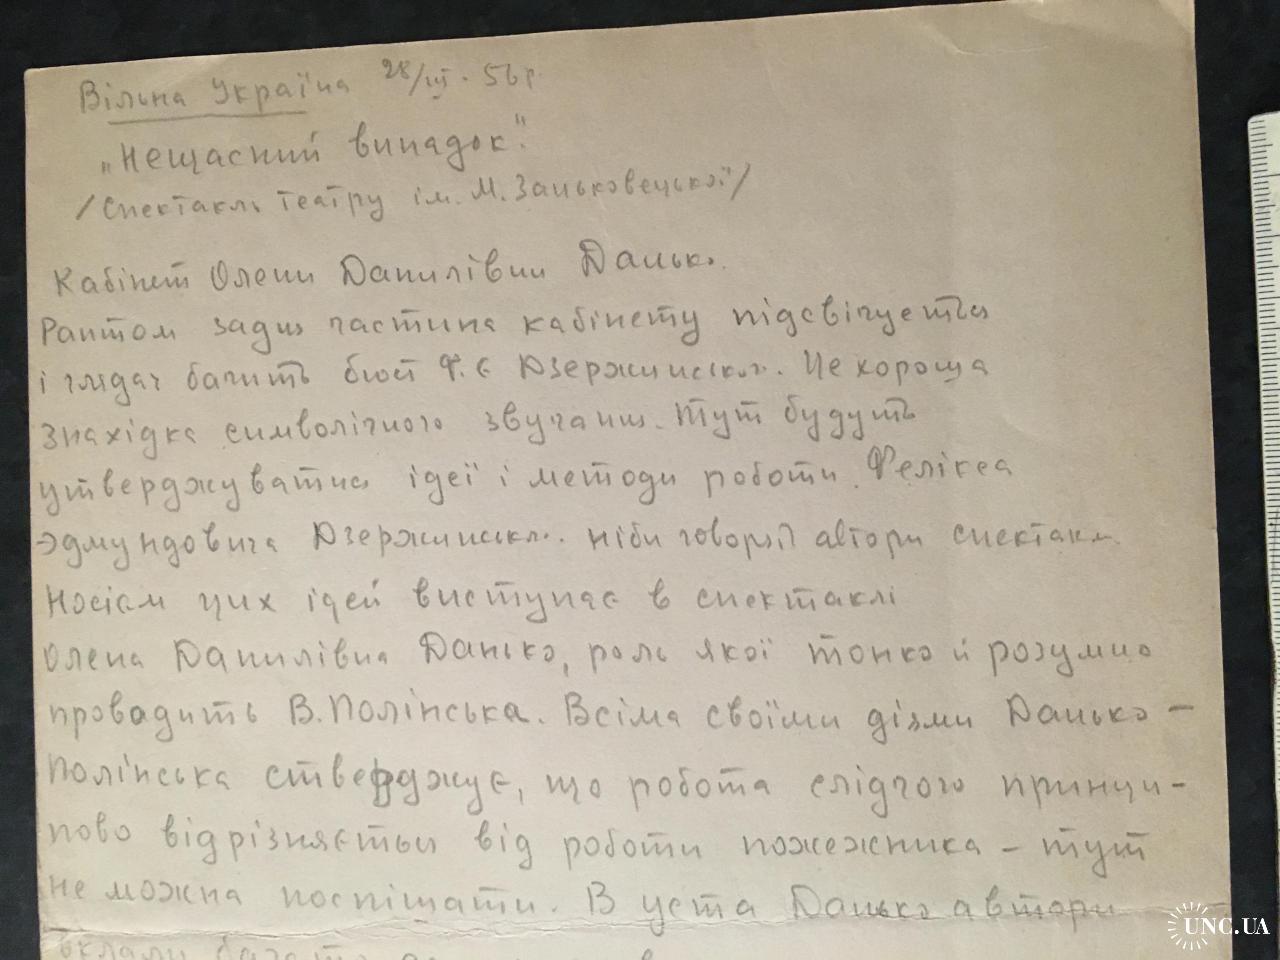 Вільна Україна 28/III. 56 р.
„Нещасний випадок".
/Спектакль театру ім. М. Заньковецької/
Кабінет Олени Данилівни Данько.
Раптом задня частина кабінету підсвічується
і глядач бачить бюст Ф. Є Дзержинськ.. Це хороша
знахідка символічного звучання. Тут будуть
утверджуватись ідеї і методи роботи Фелікса
Эдмундовича Дзержинськ.. ніби говорять автори спектакл.
Носієм цих ідей виступає в спектаклі
Олена Данилівна Данько, роль якої тонко й розумно
провадить В. Полінська. Всіма своїми діями Данько –
Полінська стверджує, що робота слідчого принци-
пово відрізняється від роботи пожежника – тут
не можна поспішати. В уста Данько автори
вклали
UNC.UA